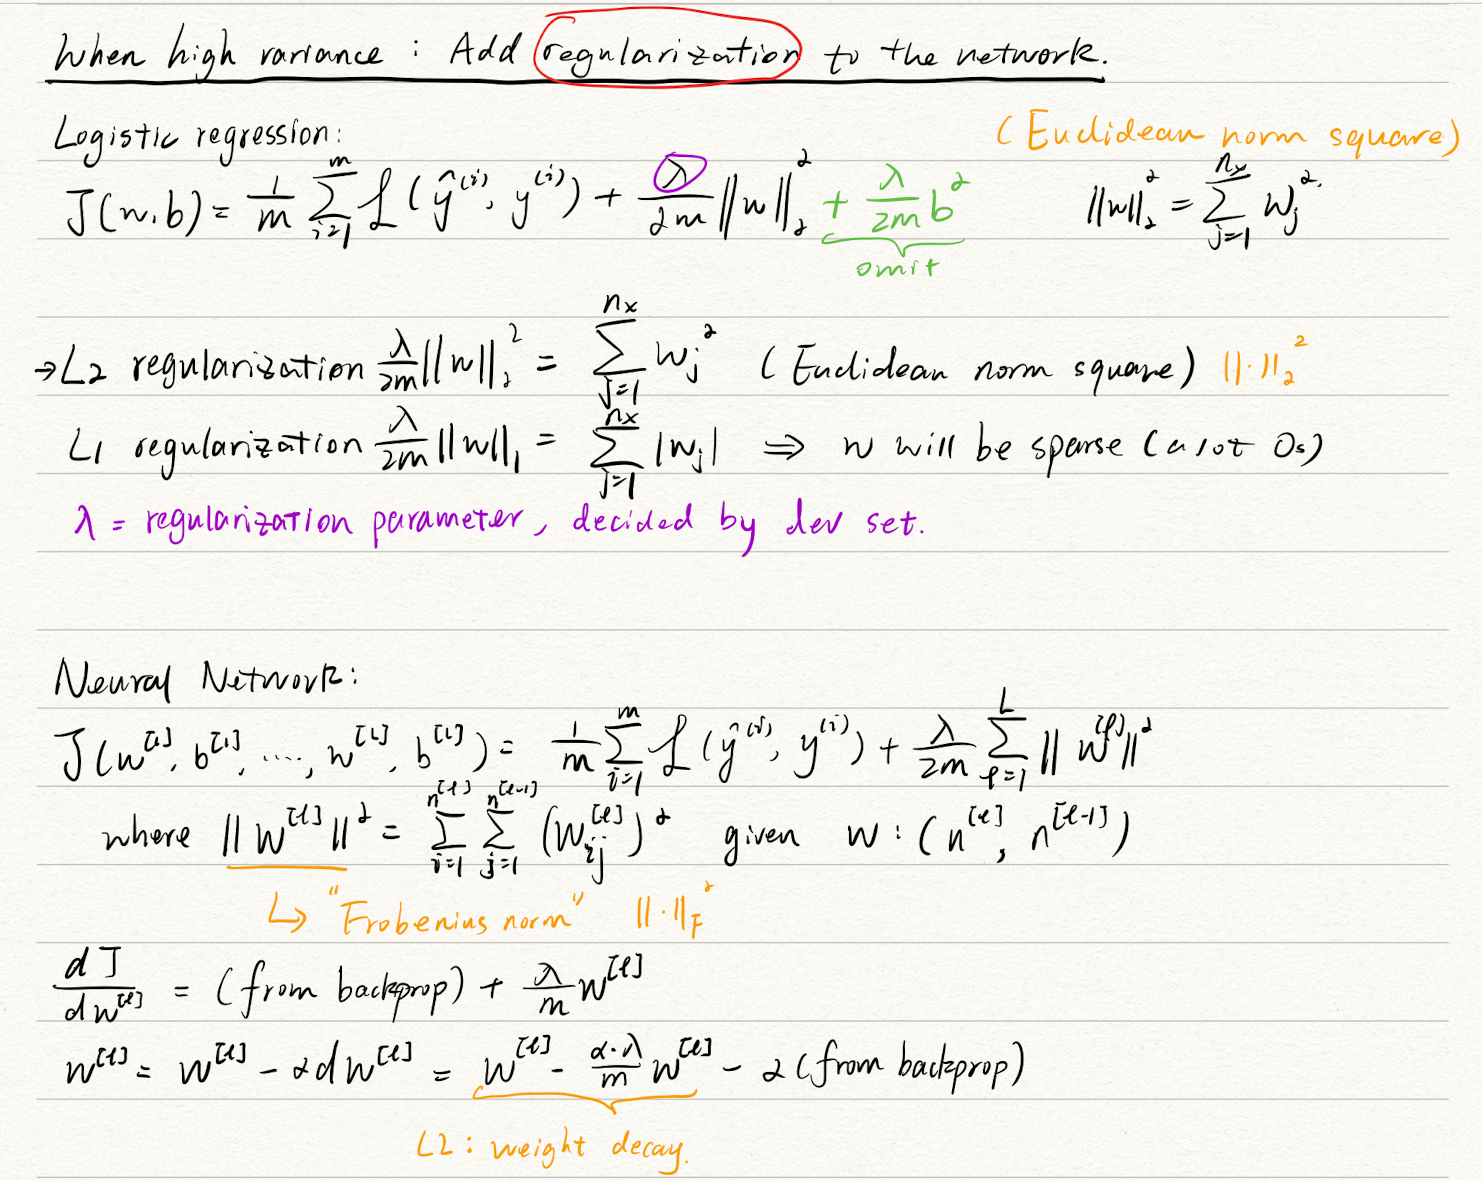 When high variance : Add regularization to the network.
Logistic regression:
(Euclidean norm square)
J(w,b) = 1/m Σ_{i=1}^{m} ℒ(ŷ^{(i)}, y^{(i)}) + λ/2m ||w||_2^2 + λ/2m b^2
||w||_2^2 = Σ_{j=1}^{n_x} w_j^2.
omit
→ L2 regularization λ/2m ||w||_2^2 = Σ_{j=1}^{n_x} w_j^2 (Euclidean norm square) ||·||_2^2
L1 regularization λ/2m ||w||_1 = Σ_{j=1}^{n_x} |w_j| ⇒ w will be sparse (a lot 0s)
λ = regularization parameter, decided by dev set.
Neural Network:
J(w^{[1]}, b^{[1]}, ...., w^{[L]}, b^{[L]}) = 1/m Σ_{i=1}^{m} ℒ(ŷ^{(i)}, y^{(i)}) + λ/2m Σ_{l=1}^{L} ||w^{[l]}||^2
where ||w^{[l]}||^2 = Σ_{i=1}^{n^{[l]}} Σ_{j=1}^{n^{[l-1]}} (w_{ij}^{[l]})^2 given w : (n^{[l]}, n^{[l-1]})
↳ "Frobenius norm" ||·||_F^2
dJ/dw^{[l]} = (from backprop) + λ/m w^{[l]}
w^{[l]} = w^{[l]} - αdw^{[l]} = w^{[l]} - α·λ/m w^{[l]} - α(from backprop)
L2: weight decay.